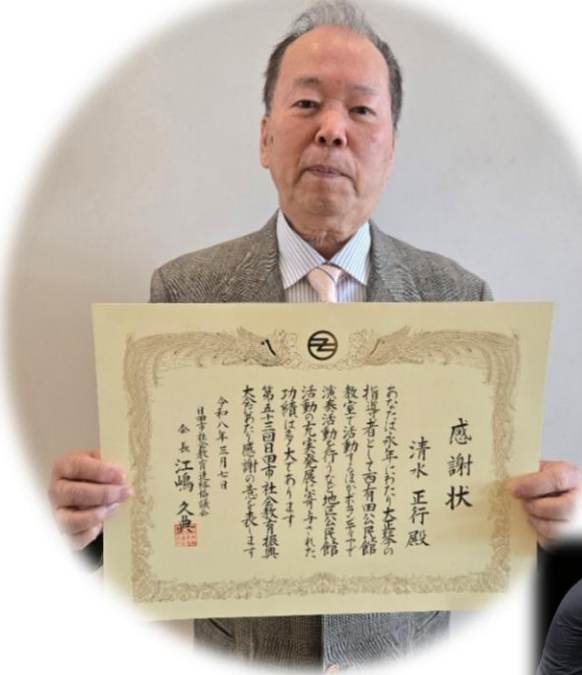 感謝状
清水 正行 殿
あなたは永年にわたり大正琴の
指導者として西有田公民館
教室で活動するほかボランティアで
演奏活動を行うなど地区公民館
活動の充実発展に寄与された
功績は多大であります
第五十三回日田市社会教育振興
大会にあたり感謝の意を表します
令和八年三月七日
日田市社会教育連絡協議会
会長 江嶋 久典